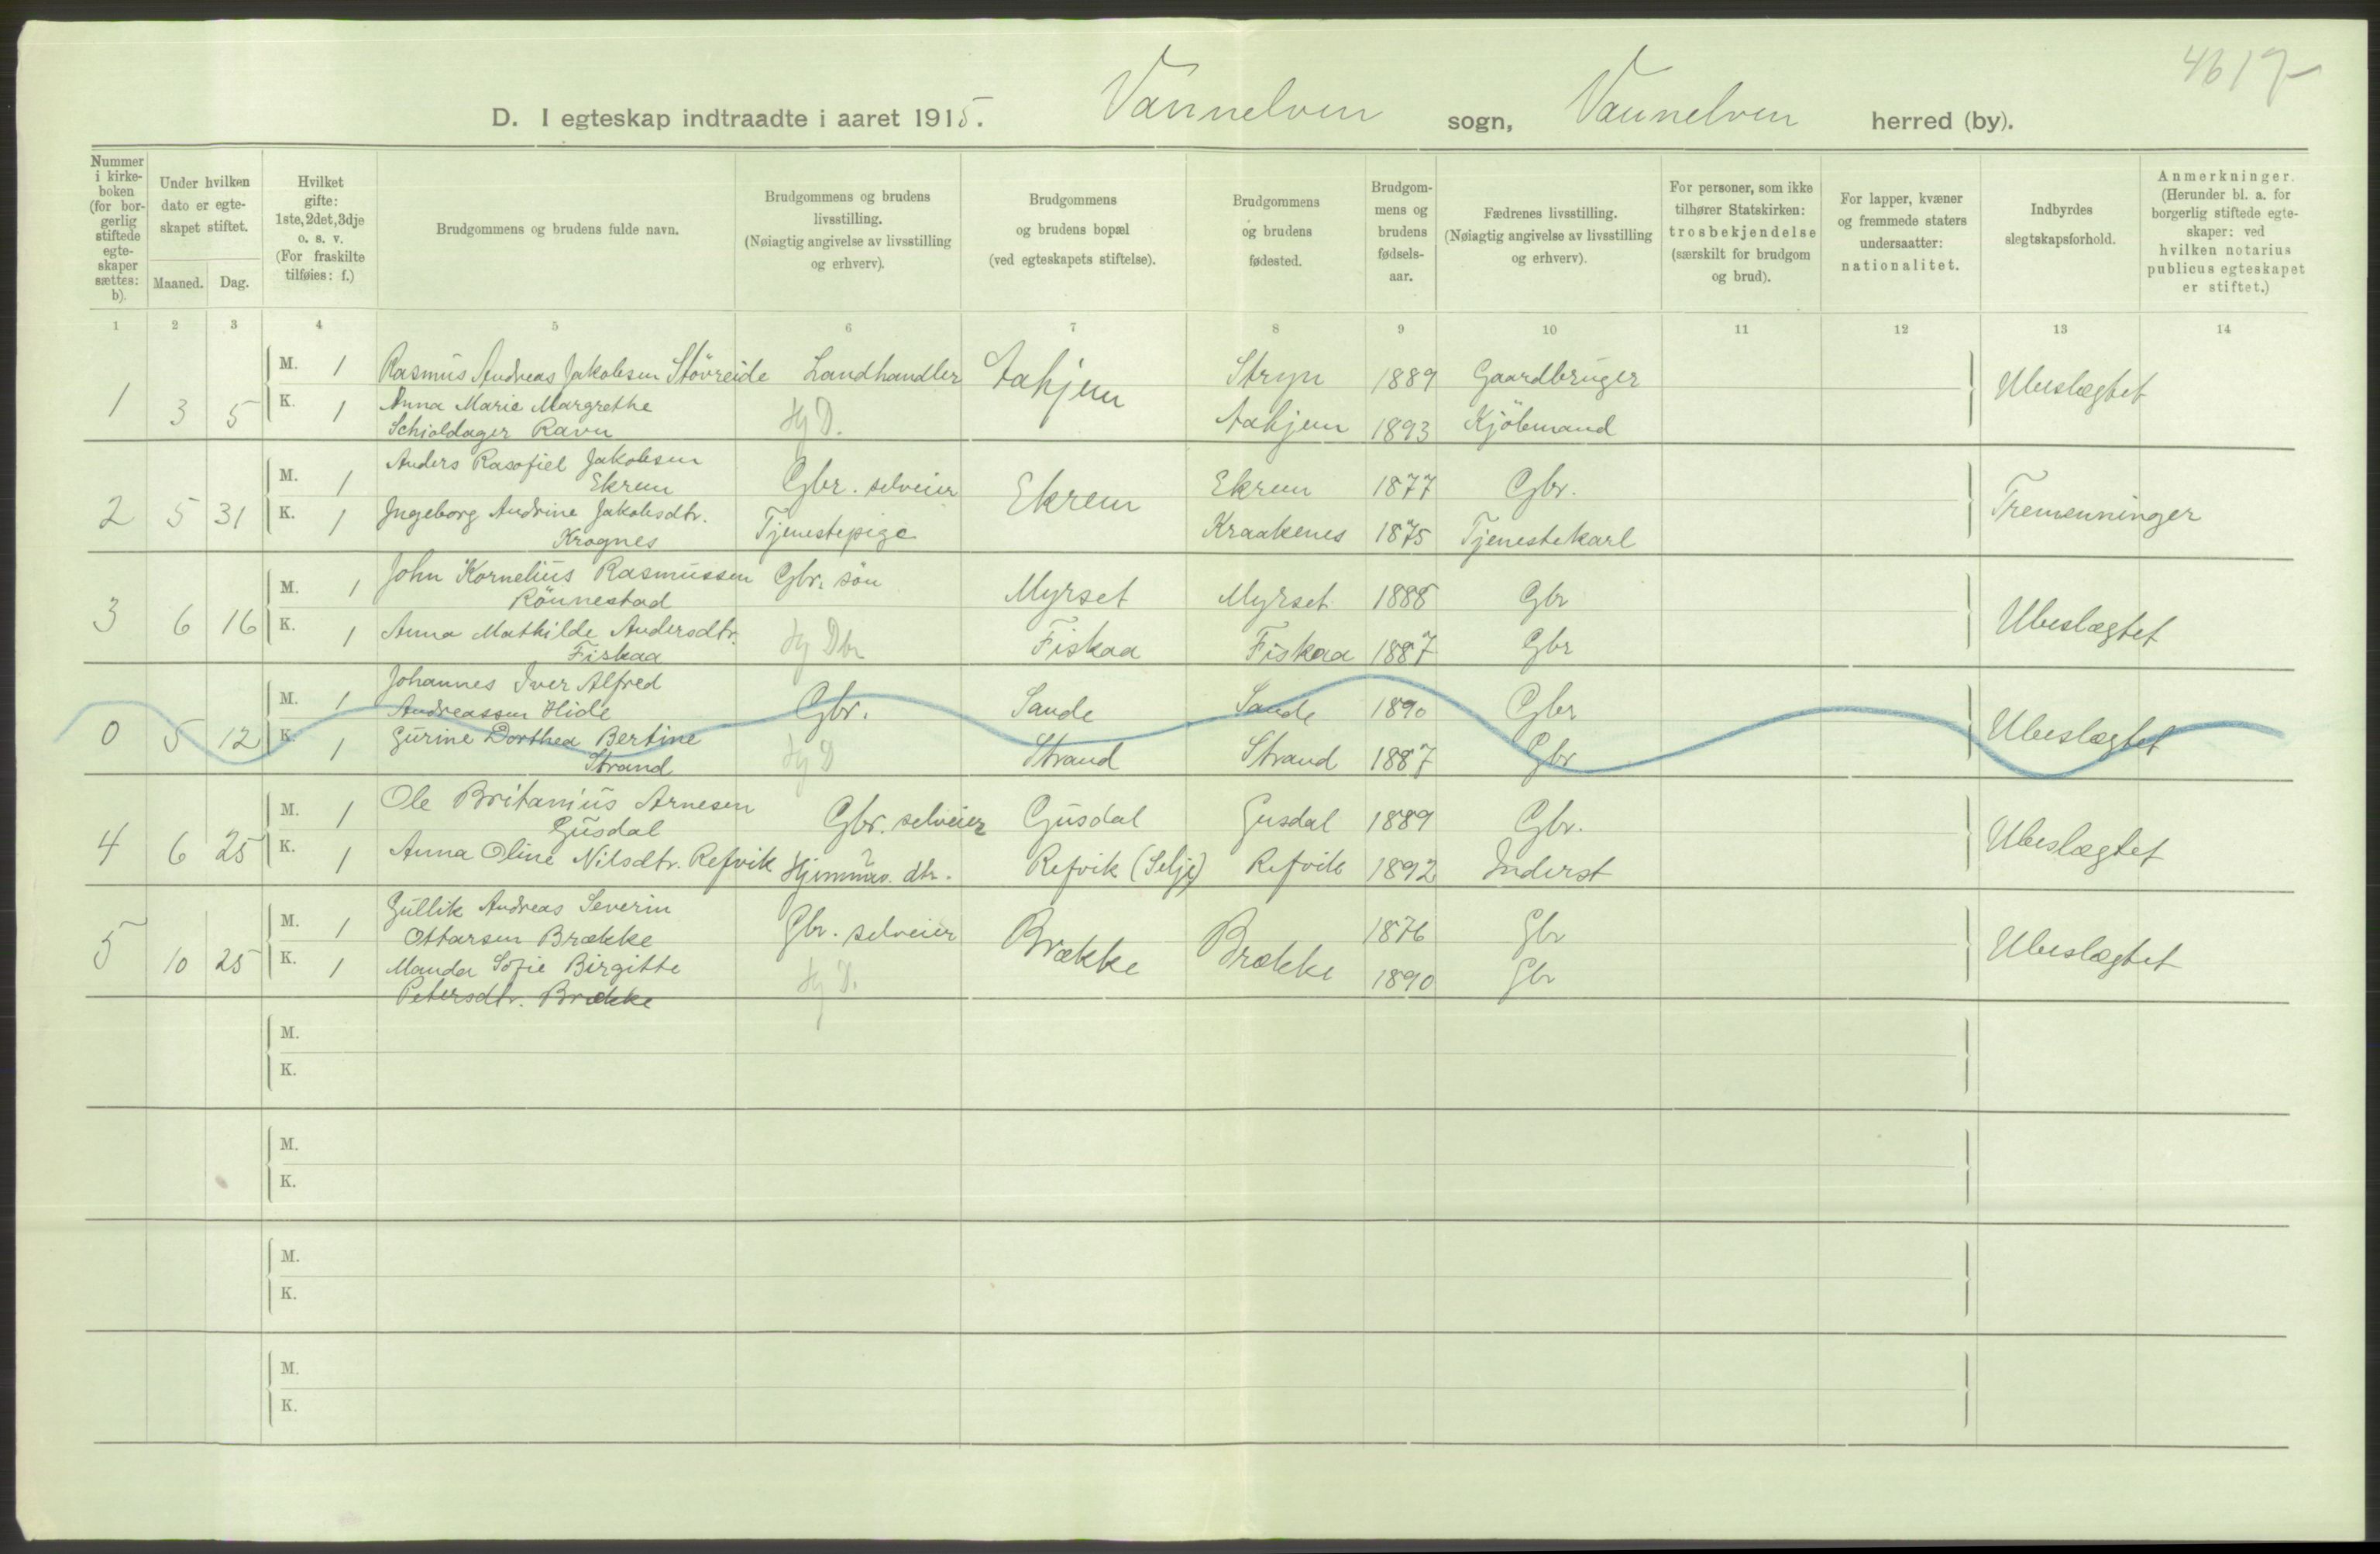 4617
D. I egteskap indtraadte i aaret 1915. Vannelven sogn, Vannelven herred (by).
Nummer i kirkeboken (for borgerlig stiftede egteskaper sættes: b).
Under hvilken dato er egteskapet stiftet.
Maaned. Dag.
Hvilket gifte: 1ste, 2det, 3dje o. s. v. (For fraskilte tilføies: f.)
Brudgommens og brudens fulde navn.
Brudgommens og brudens livsstilling. (Nøiagtig angivelse av livsstilling og erhverv).
Brudgommens og brudens bopæl (ved egteskapets stiftelse).
Brudgommens og brudens fødested.
Brudgommens og brudens fødselsaar.
Fædrenes livsstilling. (Nøiagtig angivelse av livsstilling og erhverv).
For personer, som ikke tilhører Statskirken: trosbekjendelse (særskilt for brudgom og brud).
For lapper, kvæner og fremmede staters undersaatter: nationalitet.
Indbyrdes slegtskapsforhold.
Anmerkninger. (Herunder bl. a. for borgerlig stiftede egteskaper: ved hvilken notarius publicus egteskapet er stiftet.)
1 2 3 4 5 6 7 8 9 10 11 12 13 14
M. 1 Rasmus Andreas Jakobsen Störreide Landhandler Aahjem Stryn 1889 Gaardbruger Ubeslægtet
1 3 5 K. 1 Anna Marie Margrethe Hj D. Aahjem 1893 Kjöbmand
Schioldager Ravn
Anders Rasofiel Jakobsen
M. 1 Ekrem Gbr. selveier Ekrem Ekrem 1877 Gbr. Tremenninger
2 5 31 K. 1 Ingeborg Andrine Jakobsdtr. Tjenestepige Kraakenes 1875 Tjenestekarl
Krognes
M. 1 John Kornelius Rasmussen Gbr. sön Myrset Myrset 1888 Gbr
Rönnestad
3 6 16 K. 1 Anna Mathilde Andersdtr. Hj Dtr Fiskaa Fiskaa 1887 Gbr Ubeslægtet
Fiskaa
Johannes Iver Alfred
M. 1 Andreassen Hide Gbr. Sande Sande 1890 Gbr Ubeslægtet
0 5 12 K. 1 Gurine Dorthea Bertine Hj D Strand Strand 1887 Gbr
Strand
M. 1 Ole Britanius Arnesen Gbr. selveier Gusdal Gusdal 1889 Gbr.
Gusdal
4 6 25 K. 1 Anna Oline Nilsdtr. Refvik dtr. Refvik (Selje) Refvik 1892 Inderst Ubeslægtet
Gullik Andreas Severin
M. 1 Ottarsen Brække Gbr. selveier Brække Brække 1876 Gbr Ubeslægtet
5 10 25 K. 1 Manda Sofie Birgitte Hj D. 1890 Gbr
Petersdtr. Brække
M.
K.
M.
K.
M.
K.
M.
K.